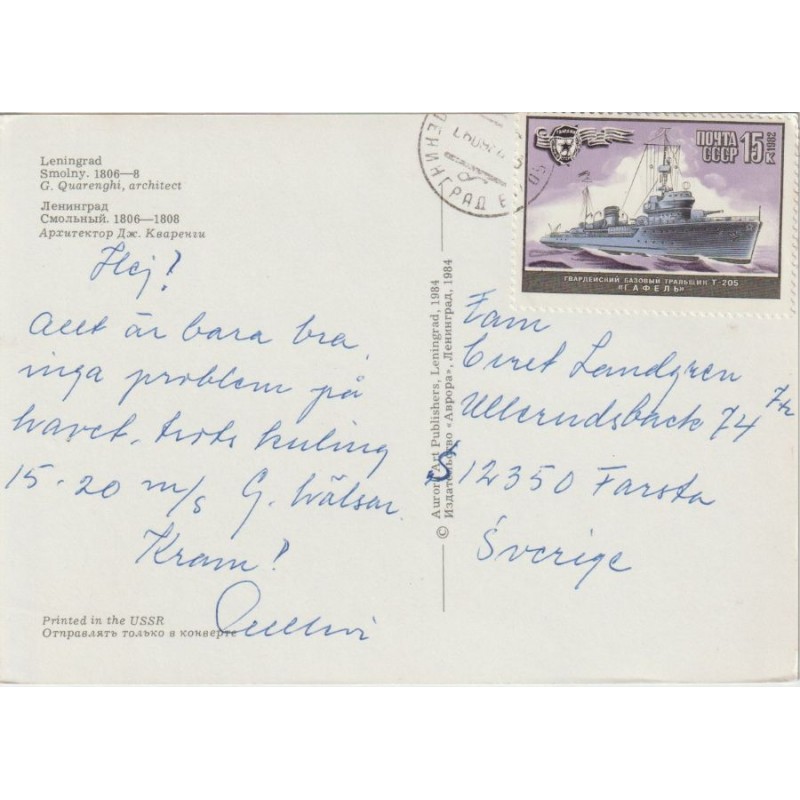 Leningrad
Smolny. 1806—8
G. Quarenghi, architect
Ленинград
Смольный. 1806—1808
Архитектор Дж. Кваренги
Hej!
Allt är bara bra,
inga problem på
havet. trots kuling
15-20 m/s G. hälsar
Kram!
Printed in the USSR
Отправлять только в конверте
© Aurora Art Publishers, Leningrad, 1984
Издательство «Аврора», Ленинград, 1984
ЛЕНИНГРАД
ПОЧТА 15к
СССР
1982
ГВАРДЕЙСКИЙ БАЗОВЫЙ ТРАЛЬЩИК Т-205
«ГАФЕЛЬ»
Fam
Landgren
74 7tr
S 12350 Farsta
Sverige